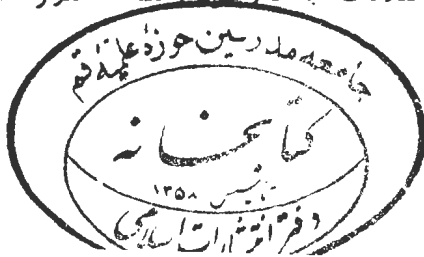 جامعه مدرسین حوزهٔ علمیهٔ قم
کتابخانه
تأسیس ۱۳۵۸
دفتر انتشارات اسلامی